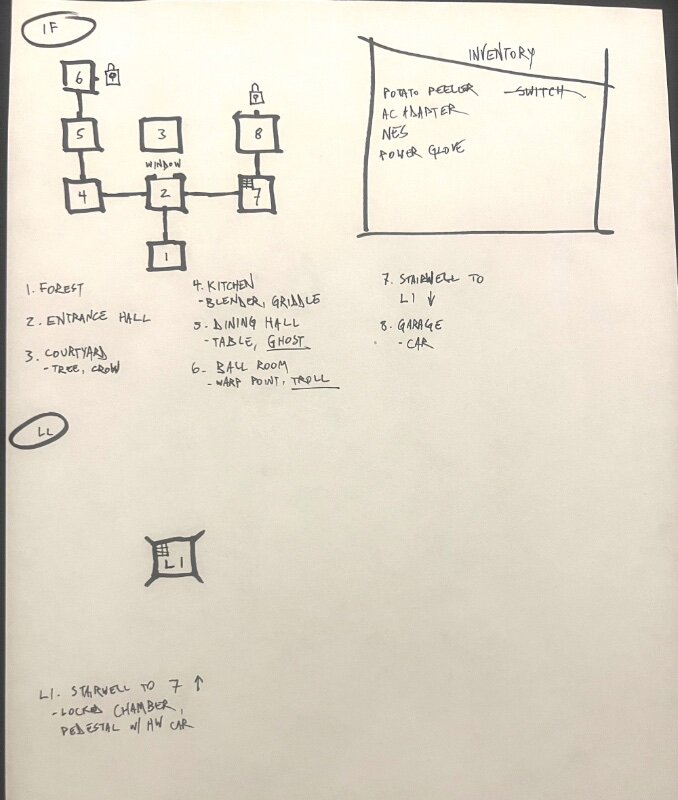 1F
6
5
3
8
WINDOW
4
2
7
1
INVENTORY
POTATO PEELER SWITCH
AC ADAPTER
NES
POWER GLOVE
1. FOREST
2. ENTRANCE HALL
3. COURTYARD
- TREE, CROW
4. KITCHEN
- BLENDER, GRIDDLE
5. DINING HALL
- TABLE, GHOST
6. BALL ROOM
- WARP POINT, TROLL
7. STAIRWELL TO
L1 ↓
8. GARAGE
- CAR
LL
L1
L1. STAIRWELL TO 7 ↑
- LOCKED CHAMBER,
PEDESTAL W/ HW CAR